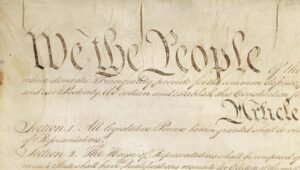 We the People of the
insure domestic Tranquility, provide for the common defence,
and our Posterity, do ordain and establish this Constitution
Article
Section. 1. All legislative Powers herein granted shall be
of Representatives.
Section. 2. The House of Representatives shall be composed of